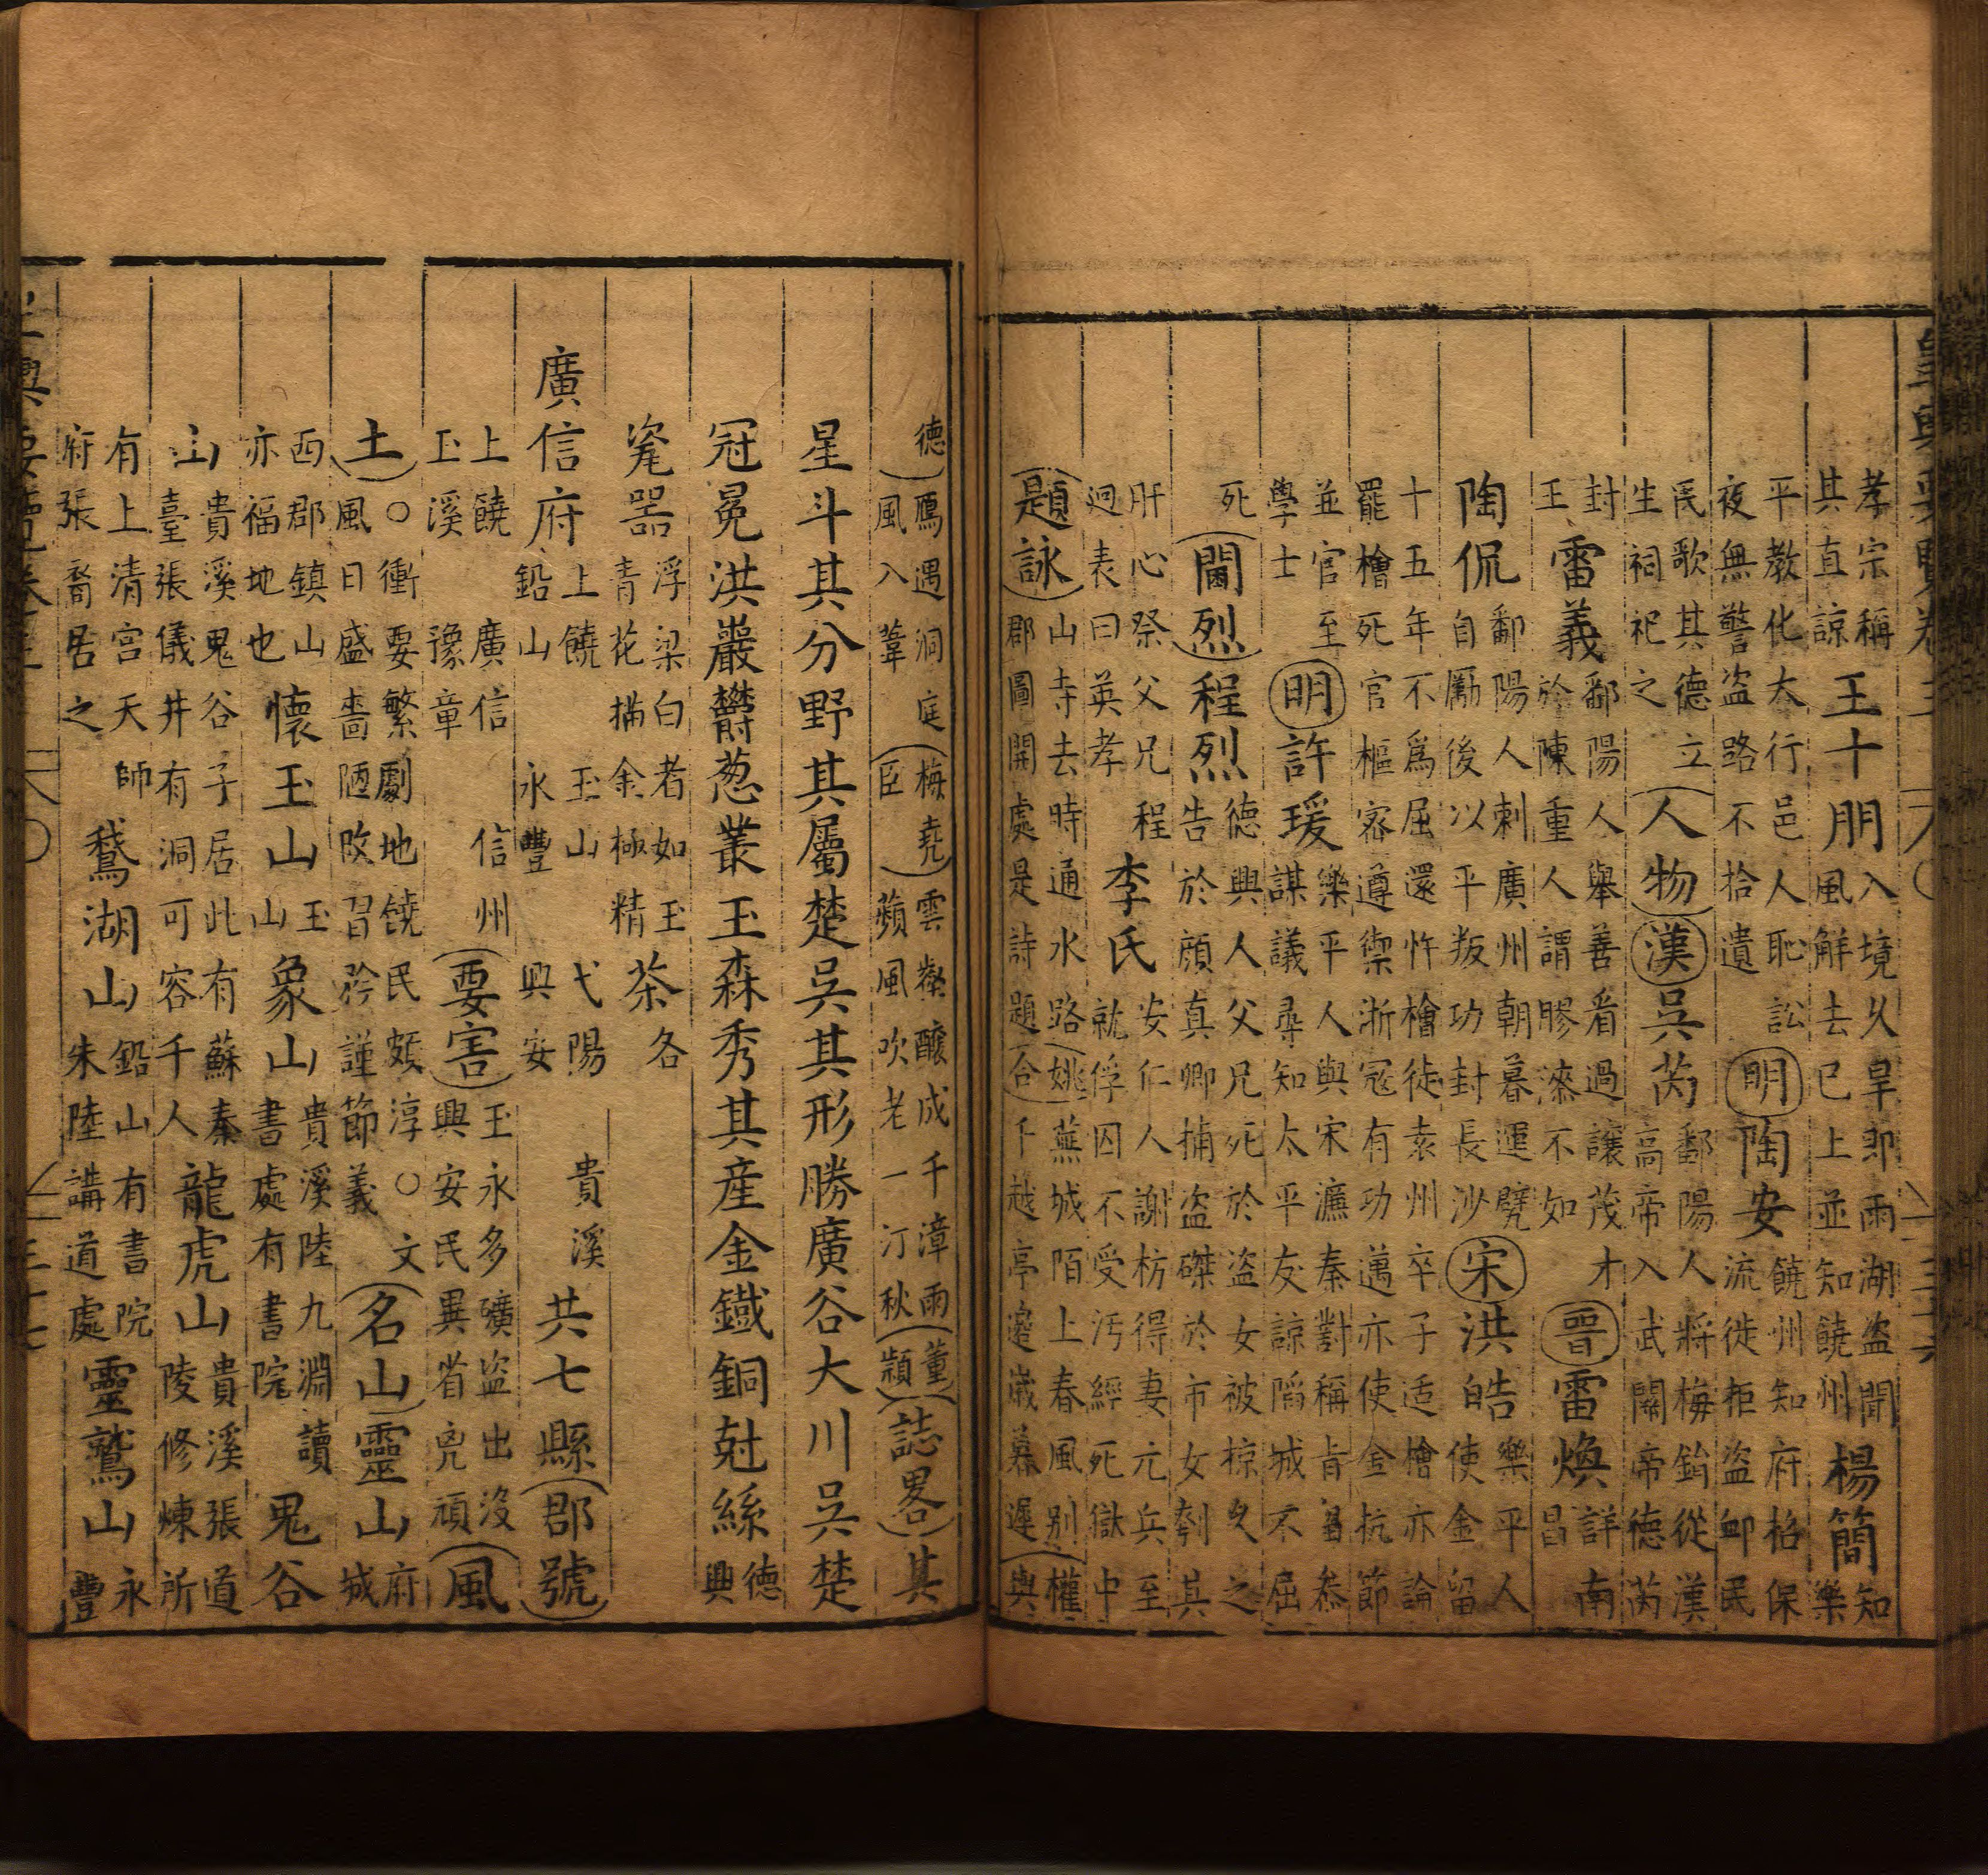 孝宗稱其直諒王十朋入境乆旱即雨湖盜聞風解去已上並知饒州楊簡知樂
平教化大行邑人恥訟夜無警盜路不拾遺明陶安饒州知府格保流徙拒盜䘏民
民歌其德立生祠祀之人物漢吳芮鄱陽人將梅鋗從漢高帝入武關帝德芮
封王雷義鄱陽人舉善看過讓茂才於陳重人謂膠漆不如晉雷煥詳南昌
陶侃鄱陽人刺廣州朝暮運甓自勵後以平叛功封長沙宋洪皓樂平人使金留
十五年不爲屈還忤檜徙袁州卒子适檜亦論罷檜死官樞密遵禦浙冦有功邁亦使金抗節
並官至學士明許瑗樂平人與宋濂秦對稱旨叅謀議尋知太平友諒䧟城不屈
死閫烈程烈德興人父兄死於盜女被掠乆之告於顔真卿捕盜磔於市女刳其
肝心祭父兄程迥表曰英孝李氏安仁人謝枋得妻元兵至就俘囚不受汚經死獄中
題詠山寺去時通水路郡圖開處是詩題姚合蕪城陌上春風别干越亭邊歲暮遲權與
德鴈遇洞庭風入葦梅堯臣雲壑釀成千漳雨蘋風吹老一汀秋董穎誌畧其
星斗其分野其屬楚吳其形勝廣谷大川吳楚
冠冕洪巖欝葱叢玉森秀其産金鐵銅尅絲德興
瓷噐浮梁白者如玉青花描金極精茶各
廣信府上饒玉山弋陽貴溪鉛山永豐興安共七縣郡號
上饒廣信信州玉溪豫章要害玉永多礦盜出没興安民異省兇頑風
土○衝要繁劇地饒民頗淳○文風日盛嗇陋敗習矜謹節義名山靈山府城
西郡鎮山亦福地也懷玉山玉山象山貴溪陸九淵讀書處有書院鬼谷
山貴溪鬼谷子居此有蘇秦臺張儀井有洞可容千人龍虎山貴溪張道陵修煉所
有上清宫天師府張裔居之鵞湖山鉛山有書院朱陸講道處靈鷲山永豐